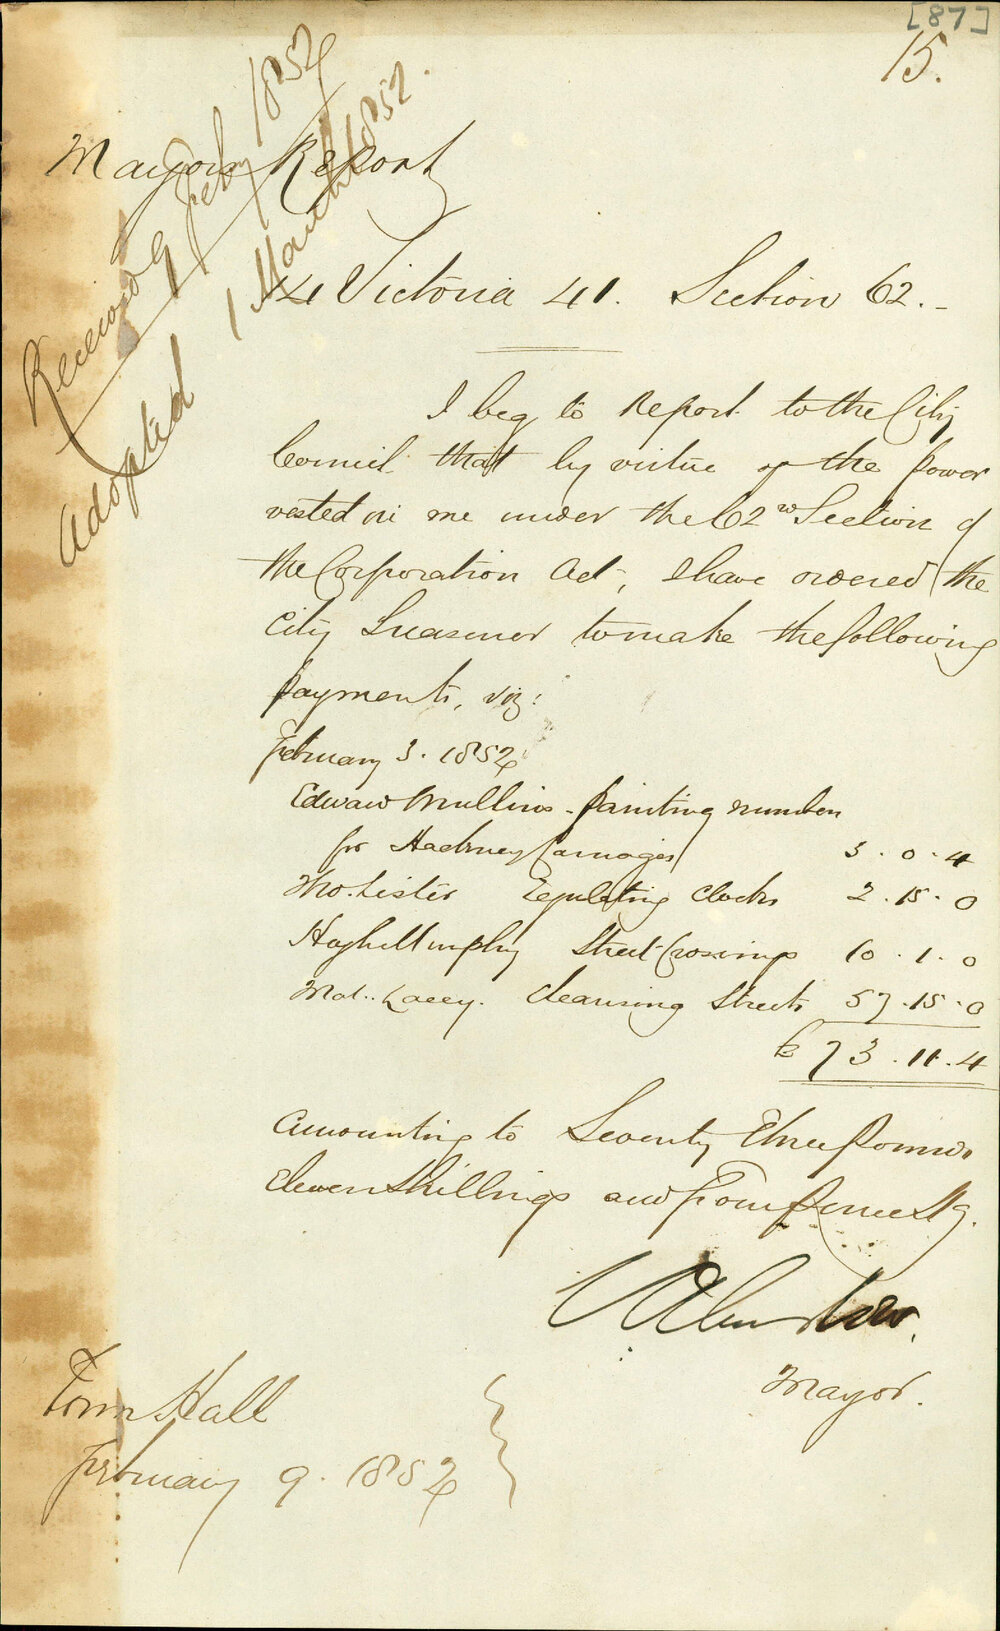 [87]
15.
Received 9 Feby 1852
Adopted 1 March 1852.
Mayors Report
14 Victoria 41. Section 62.-
I beg to Report to the City
Council that by virtue of the power
vested in me under the 62nd Section of
the Corporation Act, I have ordered the
City Treasurer to make the following
payments, viz:
February 3. 1852
Edward Mullins - painting numbers
for Hackney Carriages 3.0.4
Tho. Lister Regulating Clocks 2.15.0
Hugh Murphy Street Crossings 10.1.0
Mat.. Lacey. Cleansing Streets 57.15.0
£73.11.4
Amounting to Seventy Three pounds
Eleven Shillings and four pence Stg.
Mayor.
Town Hall
February 9. 1852